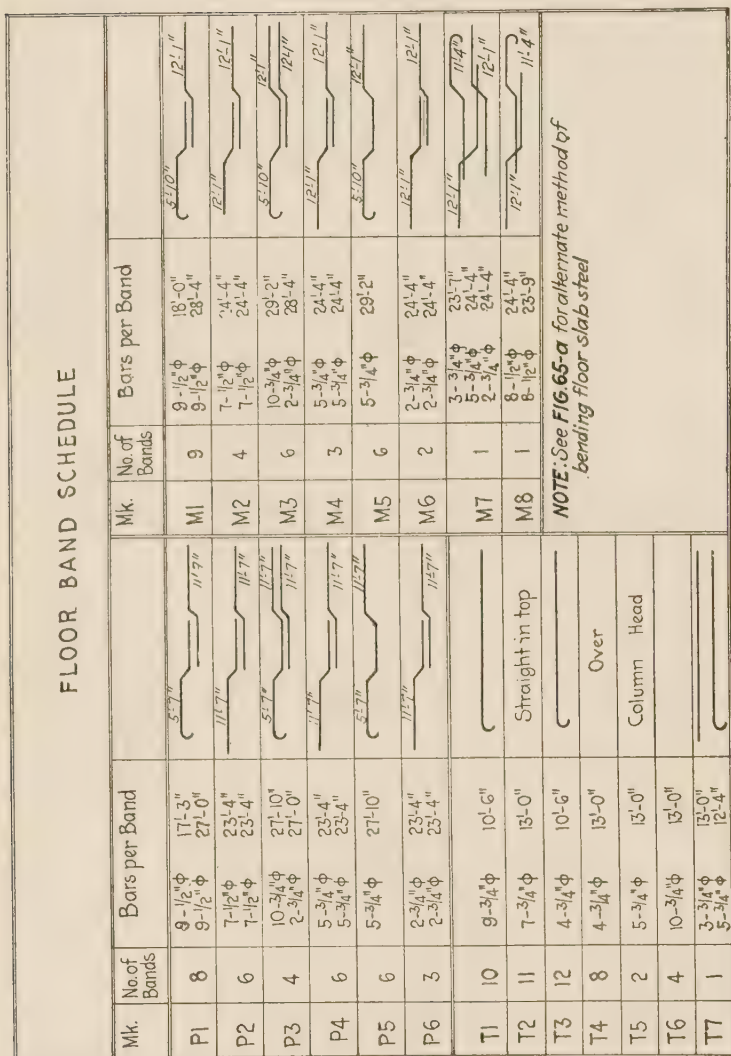 FLOOR BAND SCHEDULE
Mk. No. of Bands Bars per Band
P1 8 9-1/2"φ 17'-3" 5'-7"
9-1/2"φ 27'-0" 11'-7"
P2 6 7-1/2"φ 23'-4" 11'-7"
7-1/2"φ 23'-4" 11'-7"
P3 4 10-3/4"φ 27'-10" 5'-7" 11'-7"
2-3/4"φ 27'-0" 11'-7"
P4 6 5-3/4"φ 23'-4" 11'-7"
5-3/4"φ 23'-4" 11'-7"
P5 6 5-3/4"φ 27'-10" 5'-7" 11'-7"
P6 3 2-3/4"φ 23'-4" 11'-7"
2-3/4"φ 23'-4" 11'-7"
T1 10 9-3/4"φ 10'-6"
T2 11 7-3/4"φ 13'-0" Straight in top
T3 12 4-3/4"φ 10'-6"
T4 8 4-3/4"φ 13'-0" Over
T5 2 5-3/4"φ 13'-0" Column Head
T6 4 10-3/4"φ 13'-0"
T7 1 3-3/4"φ 13'-0"
5-3/4"φ 12'-4"
Mk. No. of Bands Bars per Band
M1 9 9-1/2"φ 18'-0" 5'-10" 12'-1"
9-1/2"φ 28'-4"
M2 4 7-1/2"φ 24'-4" 12'-1" 12'-1"
7-1/2"φ 24'-4"
M3 6 10-3/4"φ 29'-2" 5'-10" 12'-1"
2-3/4"φ 28'-4" 12'-1"
M4 3 5-3/4"φ 24'-4" 12'-1" 12'-1"
5-3/4"φ 24'-4"
M5 6 5-3/4"φ 29'-2" 5'-10" 12'-1"
M6 2 2-3/4"φ 24'-4" 12'-1" 12'-1"
2-3/4"φ 24'-4"
M7 1 3-3/4"φ 23'-7" 12'-1" 11'-4"
5-3/4"φ 24'-4" 12'-1"
2-3/4"φ 24'-4"
M8 1 8-1/2"φ 24'-4" 12'-1" 11'-4"
8-1/2"φ 23'-9"
NOTE: See FIG. 65-a for alternate method of
bending floor slab steel